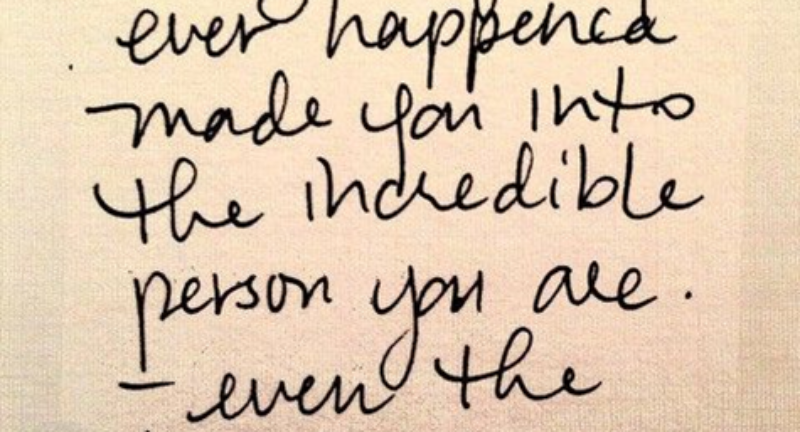 ever happened
made you into
the incredible
person you are.
- even the